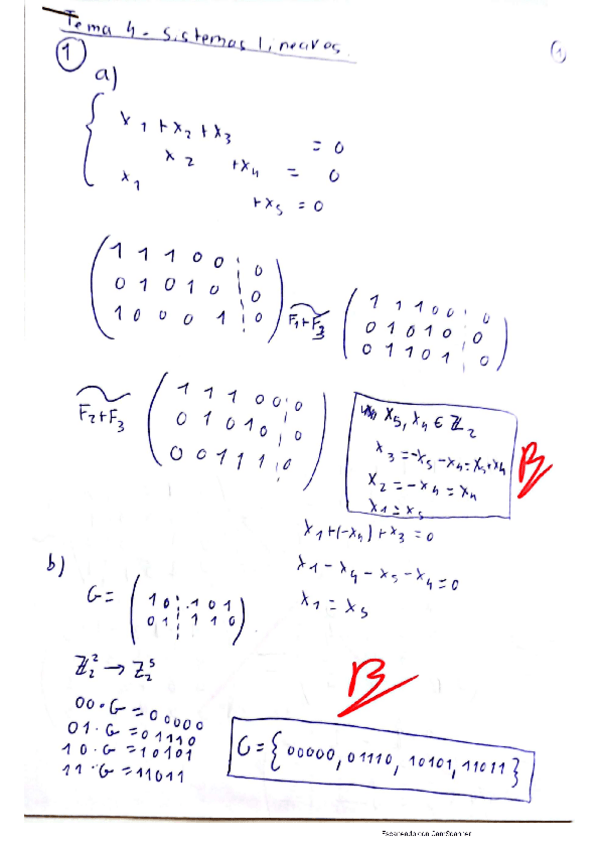 Tema 4 - Sistemas lineares.
1
1
a)
x1 + x2 + x3 = 0
x2 + x4 = 0
x1 + x5 = 0
1 1 1 0 0 | 0
0 1 0 1 0 | 0
1 0 0 0 1 | 0
F1+F3
1 1 1 0 0 | 0
0 1 0 1 0 | 0
0 1 1 0 1 | 0
F2+F3
1 1 1 0 0 | 0
0 1 0 1 0 | 0
0 0 1 1 1 | 0
x5, x4 ∈ Z2
x3 = -x5 - x4 = x5 + x4
x2 = -x4 = x4
x1 = x5
B
x1 + (-x4) + x3 = 0
x1 - x4 - x5 - x4 = 0
x1 = x5
b)
G = ( 1 0 | 1 0 1
0 1 | 1 1 0 )
Z2^2 → Z2^5
00·G = 00000
01·G = 01110
10·G = 10101
11·G = 11011
B
C = { 00000, 01110, 10101, 11011 }
Escaneado con CamScanner